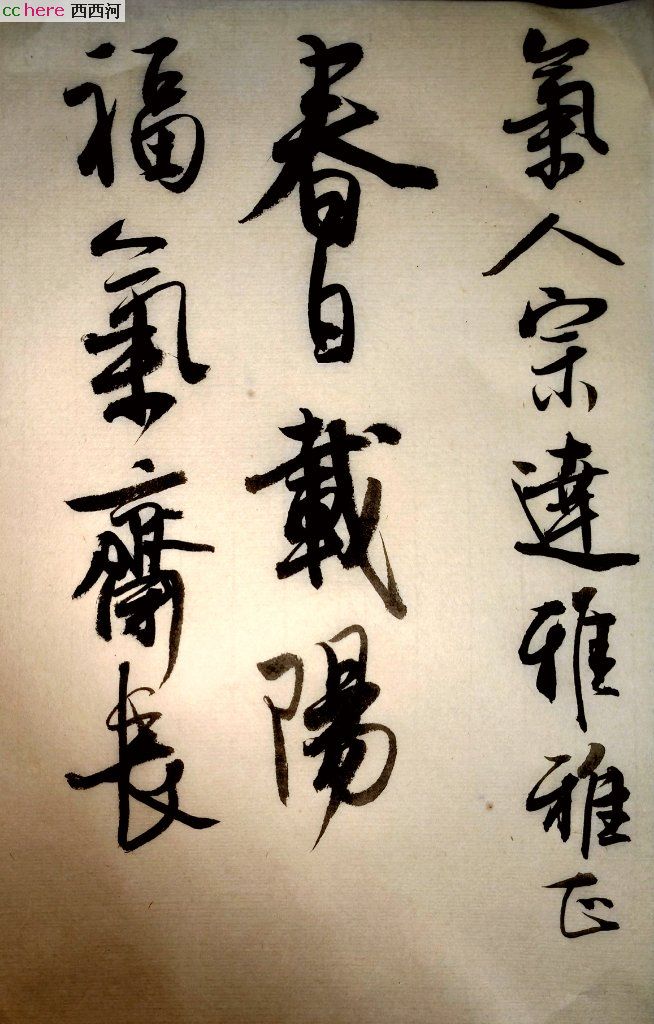 cchere 西西河
氣人宗達雅雅正
春日載陽
福氣齋長